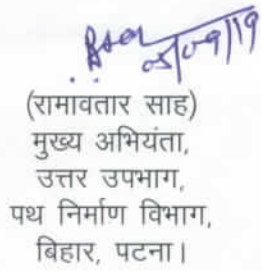 05/09/19
(रामावतार साह)
मुख्य अभियंता,
उत्तर उपभाग,
पथ निर्माण विभाग,
बिहार, पटना।